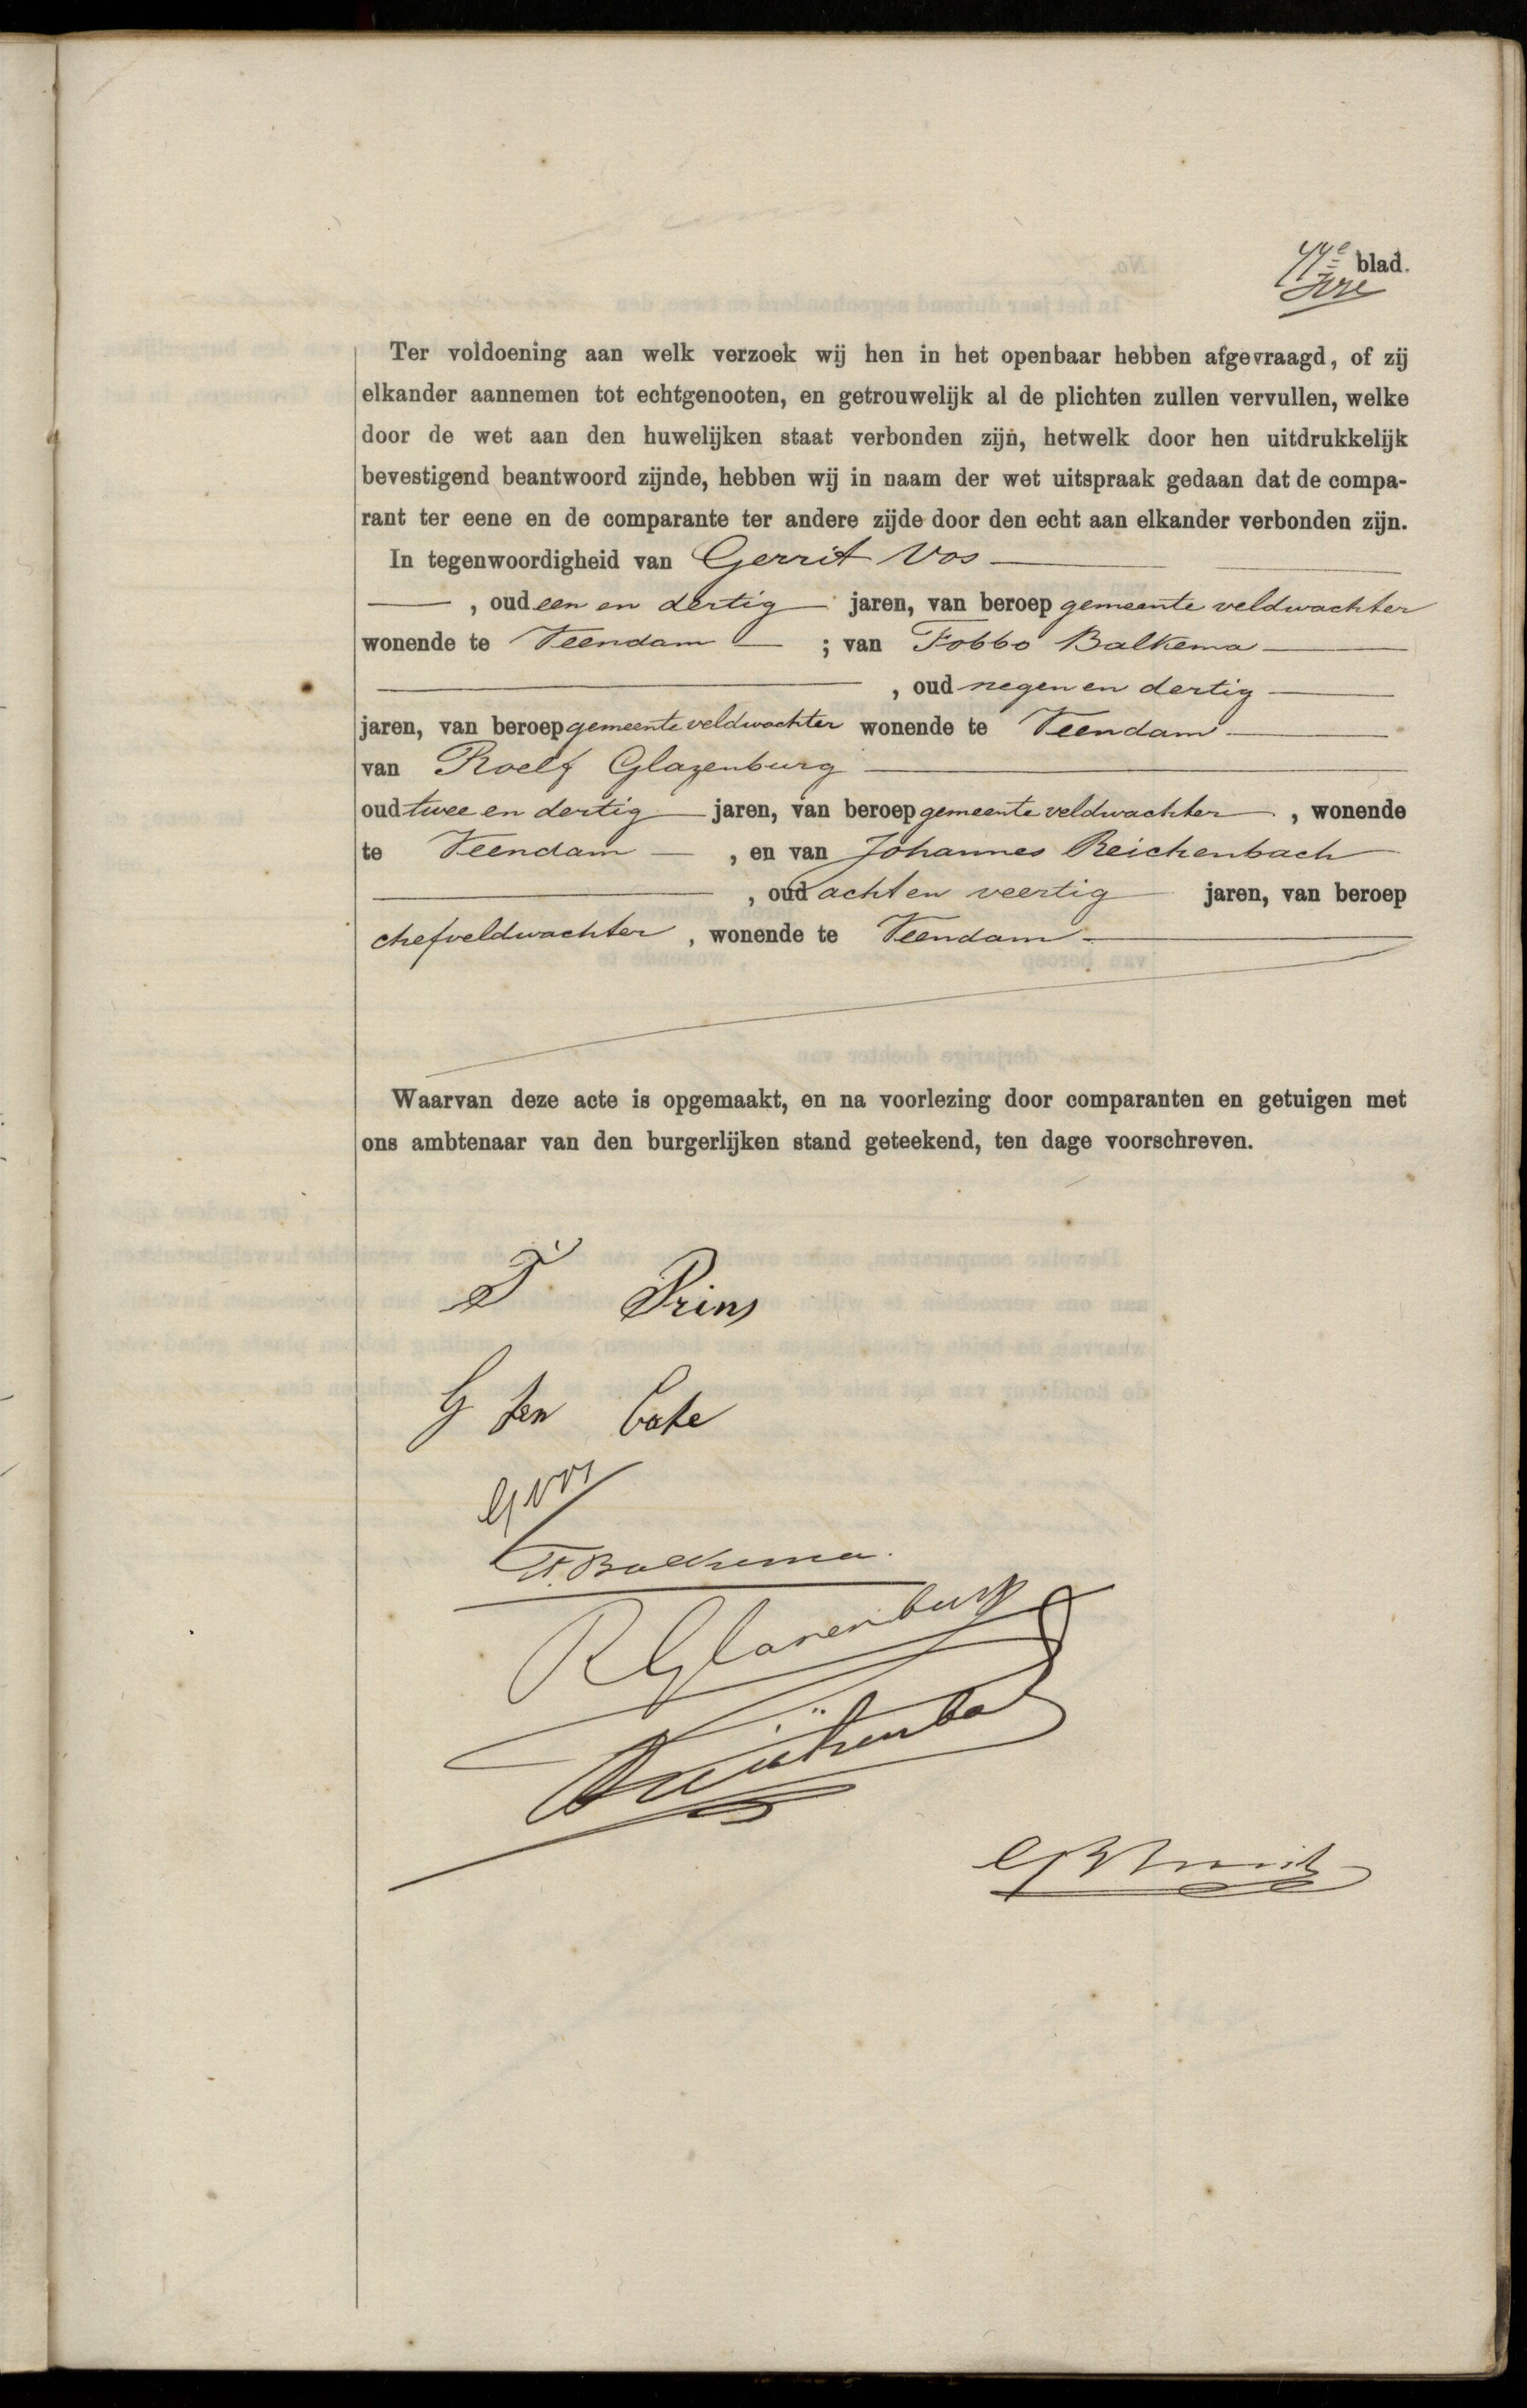 44e blad.
Ter voldoening aan welk verzoek wij hen in het openbaar hebben afgevraagd, of zij
elkander aannemen tot echtgenooten, en getrouwelijk al de plichten zullen vervullen, welke
door de wet aan den huwelijken staat verbonden zijn, hetwelk door hen uitdrukkelijk
bevestigend beantwoord zijnde, hebben wij in naam der wet uitspraak gedaan dat de compa-
rant ter eene en de comparante ter andere zijde door den echt aan elkander verbonden zijn.
In tegenwoordigheid van Gerrit Vos
, oud een en dertig jaren, van beroep gemeente veldwachter
wonende te Veendam ; van Fobbo Balkema
, oud negen en dertig
jaren, van beroep gemeente veldwachter wonende te Veendam
van Roelf Glazenburg
oud twee en dertig jaren, van beroep gemeente veldwachter , wonende
te Veendam , en van Johannes Reichenbach
, oud acht en veertig jaren, van beroep
chefveldwachter , wonende te Veendam
Waarvan deze acte is opgemaakt, en na voorlezing door comparanten en getuigen met
ons ambtenaar van den burgerlijken stand geteekend, ten dage voorschreven.
Prins
G ten Cate
G Vos
F. Balkema.
R Glazenburg
Reichenbach